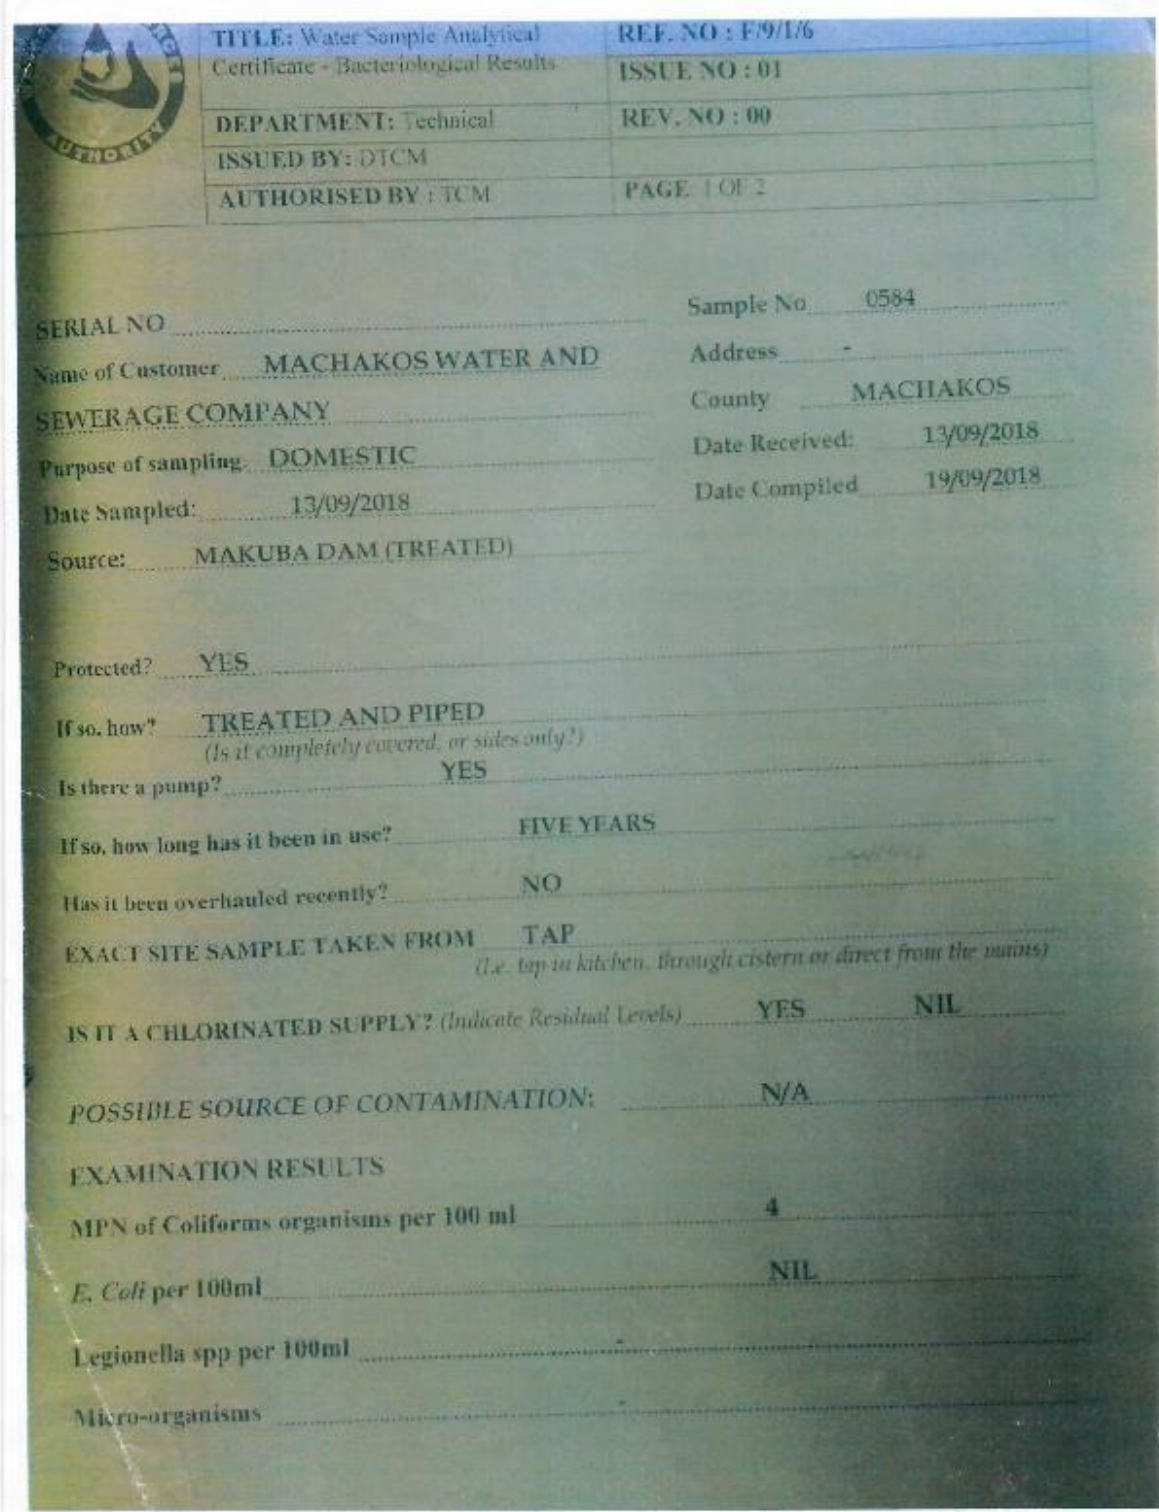 AUTHORITY
TITLE: Water Sample Analytical
Certificate - Bacteriological Results
REF. NO : F/9/1/6
ISSUE NO : 01
DEPARTMENT: Technical
REV. NO : 00
ISSUED BY: DTCM
AUTHORISED BY : TCM
PAGE 1 OF 2
SERIAL NO
Sample No 0584
Name of Customer MACHAKOS WATER AND
Address -
SEWERAGE COMPANY
County MACHAKOS
Purpose of sampling DOMESTIC
Date Received: 13/09/2018
Date Sampled: 13/09/2018
Date Compiled 19/09/2018
Source: MAKUBA DAM (TREATED)
Protected? YES
If so, how? TREATED AND PIPED
(Is it completely covered, or sides only?)
Is there a pump? YES
If so, how long has it been in use? FIVE YEARS
Has it been overhauled recently? NO
EXACT SITE SAMPLE TAKEN FROM TAP
(I.e. tap in kitchen, through cistern or direct from the mains)
IS IT A CHLORINATED SUPPLY? (Indicate Residual Levels) YES NIL
POSSIBLE SOURCE OF CONTAMINATION: N/A
EXAMINATION RESULTS
MPN of Coliforms organisms per 100 ml 4
E. Coli per 100ml NIL
Legionella spp per 100ml -
Micro-organisms -